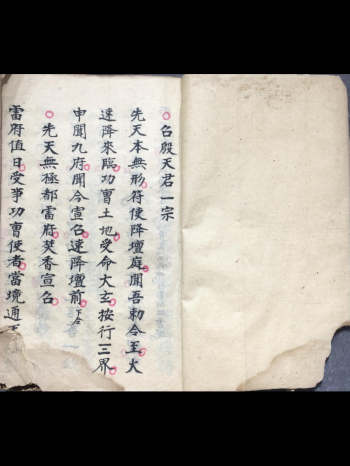 召殷天君一宗
先天本無形符使降壇庭聞吾勅令至火
速降來臨功曹土地受命大玄按行三界
申聞九府聞今宣召速降壇前下合
先天無極都雷府焚香宣召
雷府值日受事功曹使者當境通